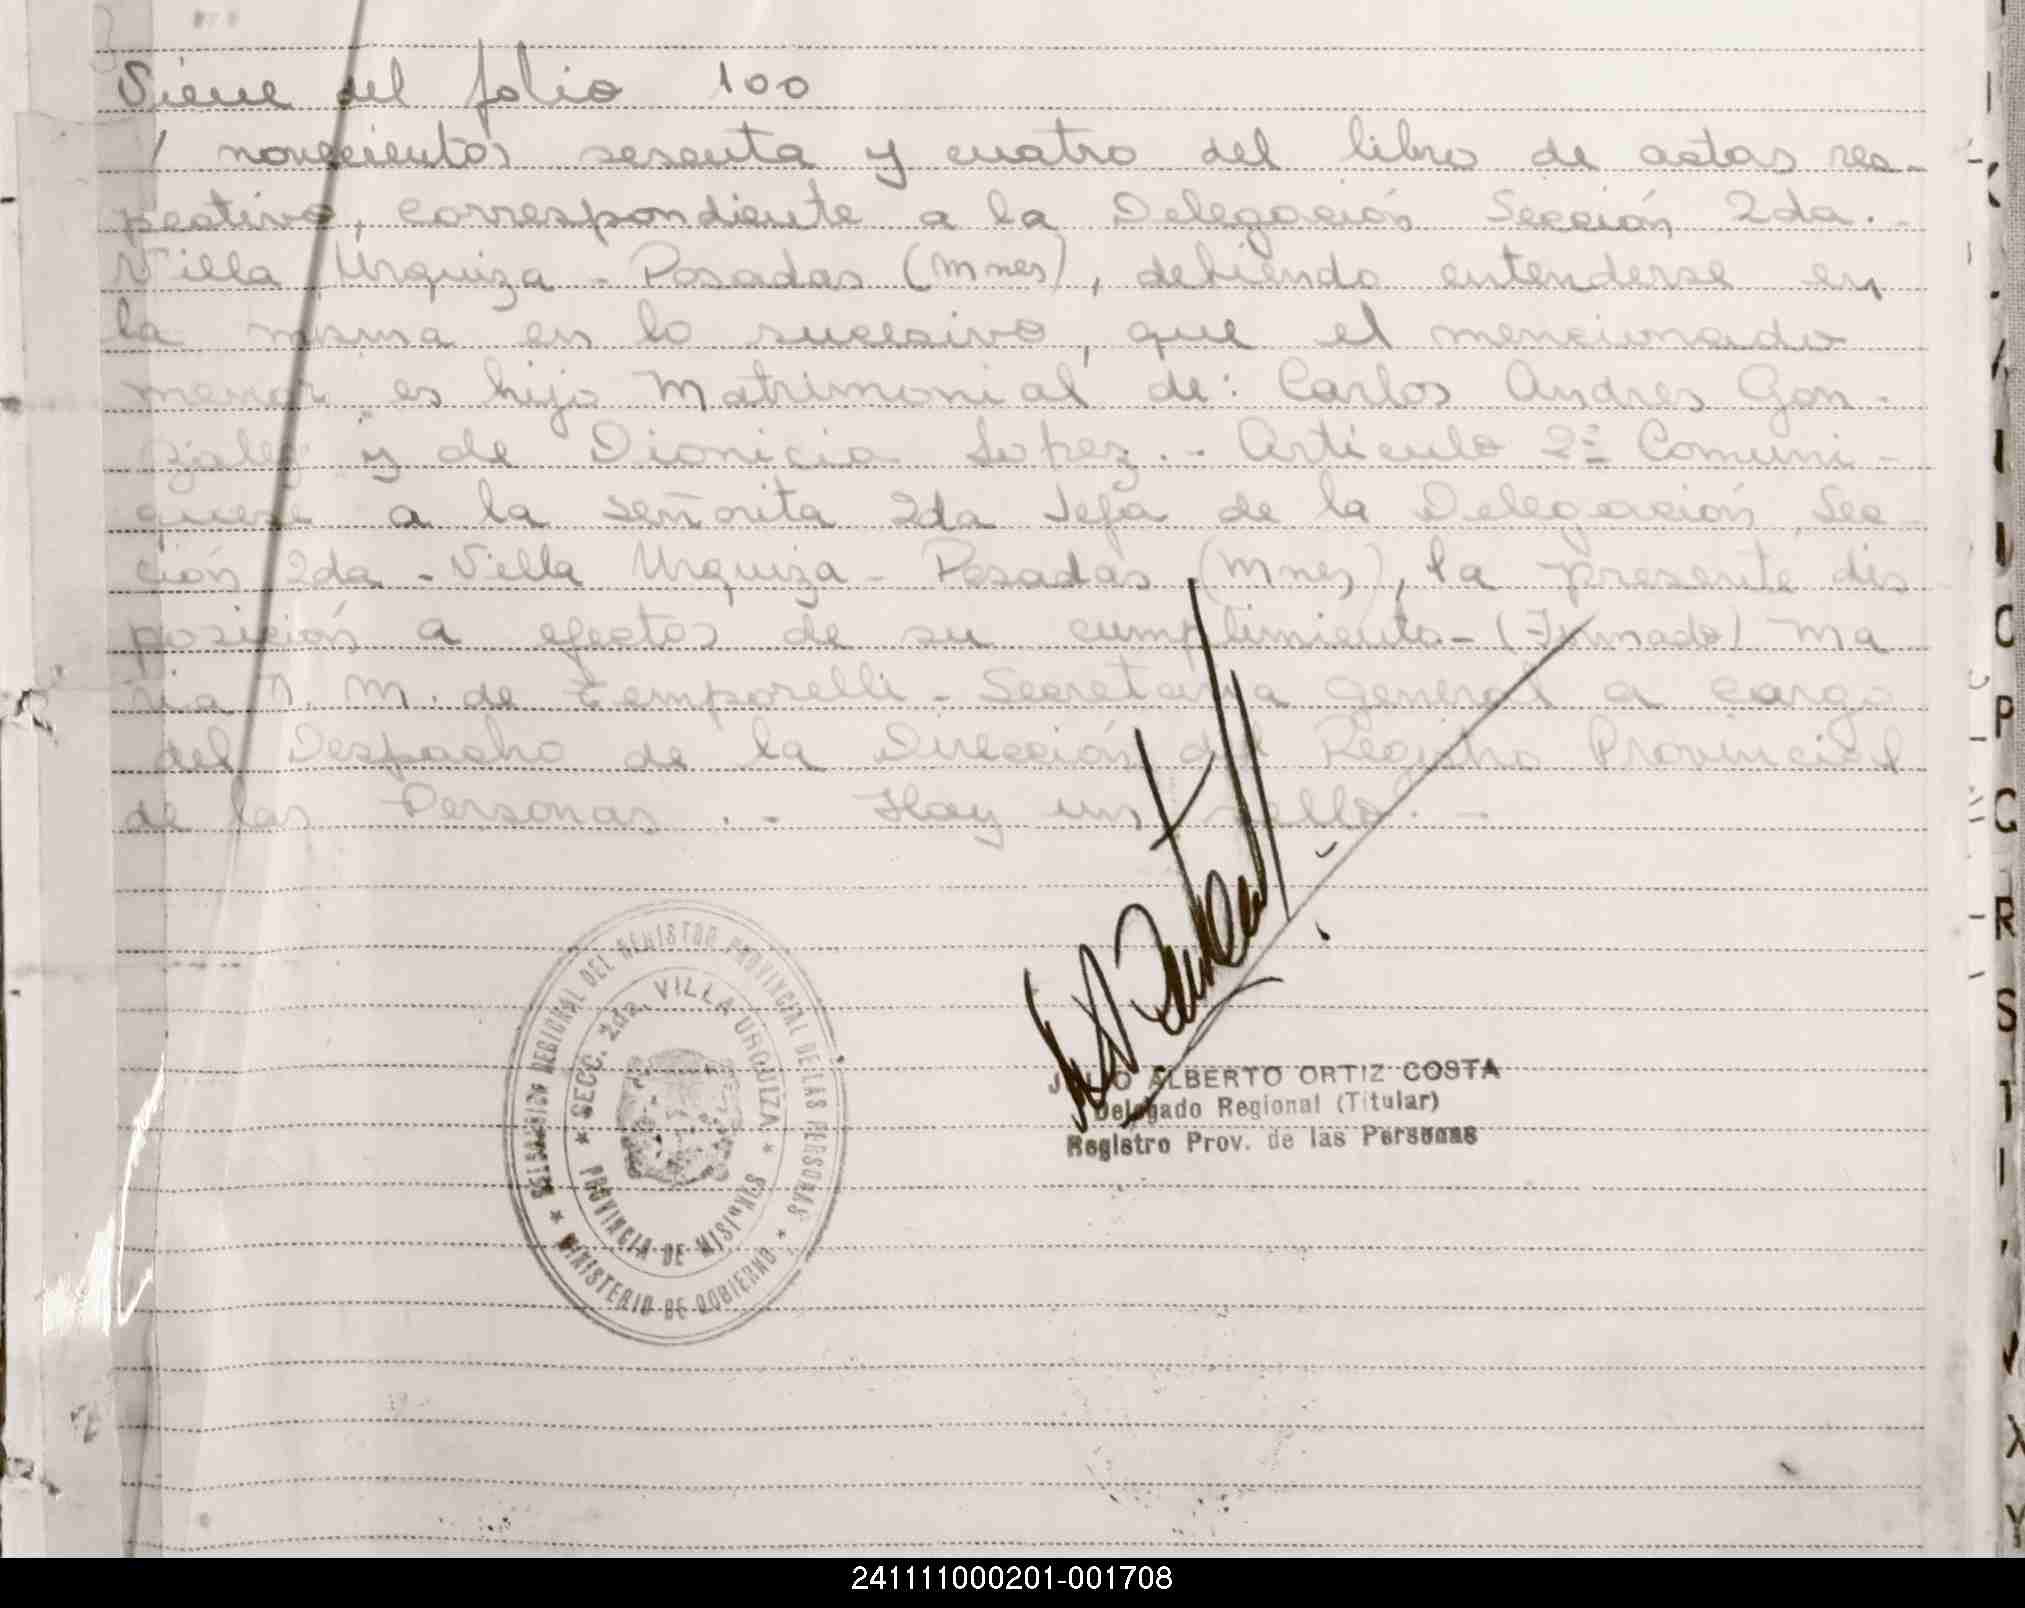 Viene del folio 100
/ novecientos sesenta y cuatro del libro de actas res-
pectivo, correspondiente a la Delegación Sección 2da.-
Villa Urquiza - Posadas (Mnes), debiendo entenderse en
la misma en lo sucesivo, que el mencionado
menor es hijo Matrimonial de: Carlos Andres Gon-
zalez y de Dionicia Lopez.- Artículo 2º Comuni-
quese a la señorita 2da Jefa de la Delegación Sec-
ción 2da - Villa Urquiza - Posadas (Mnes), la presente dis
posición a efectos de su cumplimiento.- (Firmado) Ma
ria T. M. de Temporelli - Secretaria General a cargo
del Despacho de la Dirección del Registro Provincial
de las Personas.- Hay un sello.-
DELEGACION REGIONAL DEL REGISTRO PROVINCIAL DE LAS PERSONAS
★ SECC. 2da. VILLA URQUIZA ★
PROVINCIA DE MISIONES
★ MINISTERIO DE GOBIERNO ★
JULIO ALBERTO ORTIZ COSTA
Delegado Regional (Titular)
Registro Prov. de las Personas
C
P
G
R
S
T
X
Y
241111000201-001708